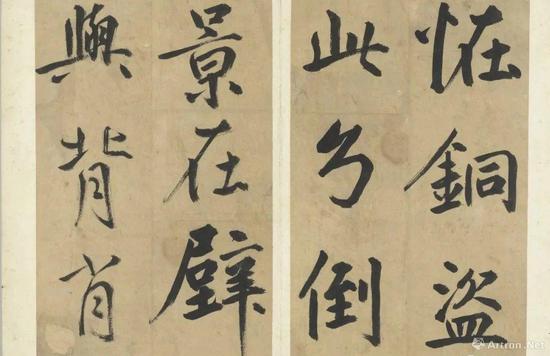 恠銅盜
此倒
景在壁
與背肖
Artron.Net